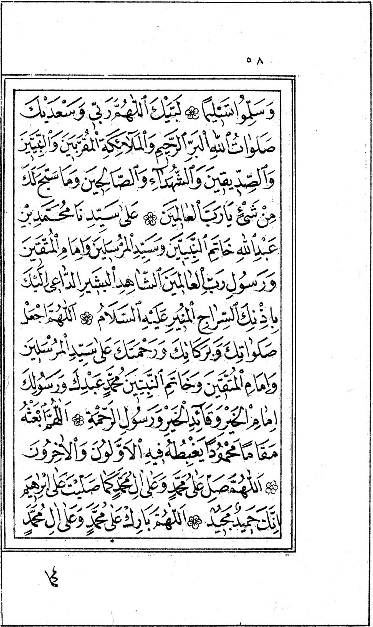 ٥٨
وَسَلِّمُوا تَسْلِيمًا ۞ لَبَّيْكَ اَللّٰهُمَّ رَبِّي وَسَعْدَيْكَ
صَلَوَاتُ اللّٰهِ الْبَرِّ الرَّحِيمِ وَالْمَلَائِكَةِ الْمُقَرَّبِينَ وَالنَّبِيِّينَ
وَالصِّدِّيقِينَ وَالشُّهَدَاءِ وَالصَّالِحِينَ وَمَا سَبَّحَ لَكَ
مِنْ شَيْءٍ يَا رَبَّ الْعَالَمِينَ ۞ عَلَى سَيِّدِنَا مُحَمَّدِ بْنِ
عَبْدِ اللّٰهِ خَاتِمِ النَّبِيِّينَ وَسَيِّدِ الْمُرْسَلِينَ وَاِمَامِ الْمُتَّقِينَ
وَرَسُولِ رَبِّ الْعَالَمِينَ الشَّاهِدِ الْبَشِيرِ الدَّاعِي اِلَيْكَ
بِاِذْنِكَ السِّرَاجِ الْمُنِيرِ عَلَيْهِ السَّلَامُ ۞ اَللّٰهُمَّ اجْعَلْ
صَلَوَاتِكَ وَبَرَكَاتِكَ وَرَحْمَتَكَ عَلَى سَيِّدِ الْمُرْسَلِينَ
وَاِمَامِ الْمُتَّقِينَ وَخَاتِمِ النَّبِيِّينَ مُحَمَّدٍ عَبْدِكَ وَرَسُولِكَ
اِمَامِ الْخَيْرِ وَقَائِدِ الْخَيْرِ وَرَسُولِ الرَّحْمَةِ ۞ اَللّٰهُمَّ ابْعَثْهُ
مَقَامًا مَحْمُودًا يَغْبِطُهُ فِيهِ الْاَوَّلُونَ وَالْاٰخِرُونَ
۞ اَللّٰهُمَّ صَلِّ عَلَى مُحَمَّدٍ وَعَلَى اٰلِ مُحَمَّدٍ كَمَا صَلَّيْتَ عَلَى اِبْرٰهِيمَ
اِنَّكَ حَمِيدٌ مَجِيدٌ ۞ اَللّٰهُمَّ بَارِكْ عَلَى مُحَمَّدٍ وَعَلَى اٰلِ مُحَمَّدٍ